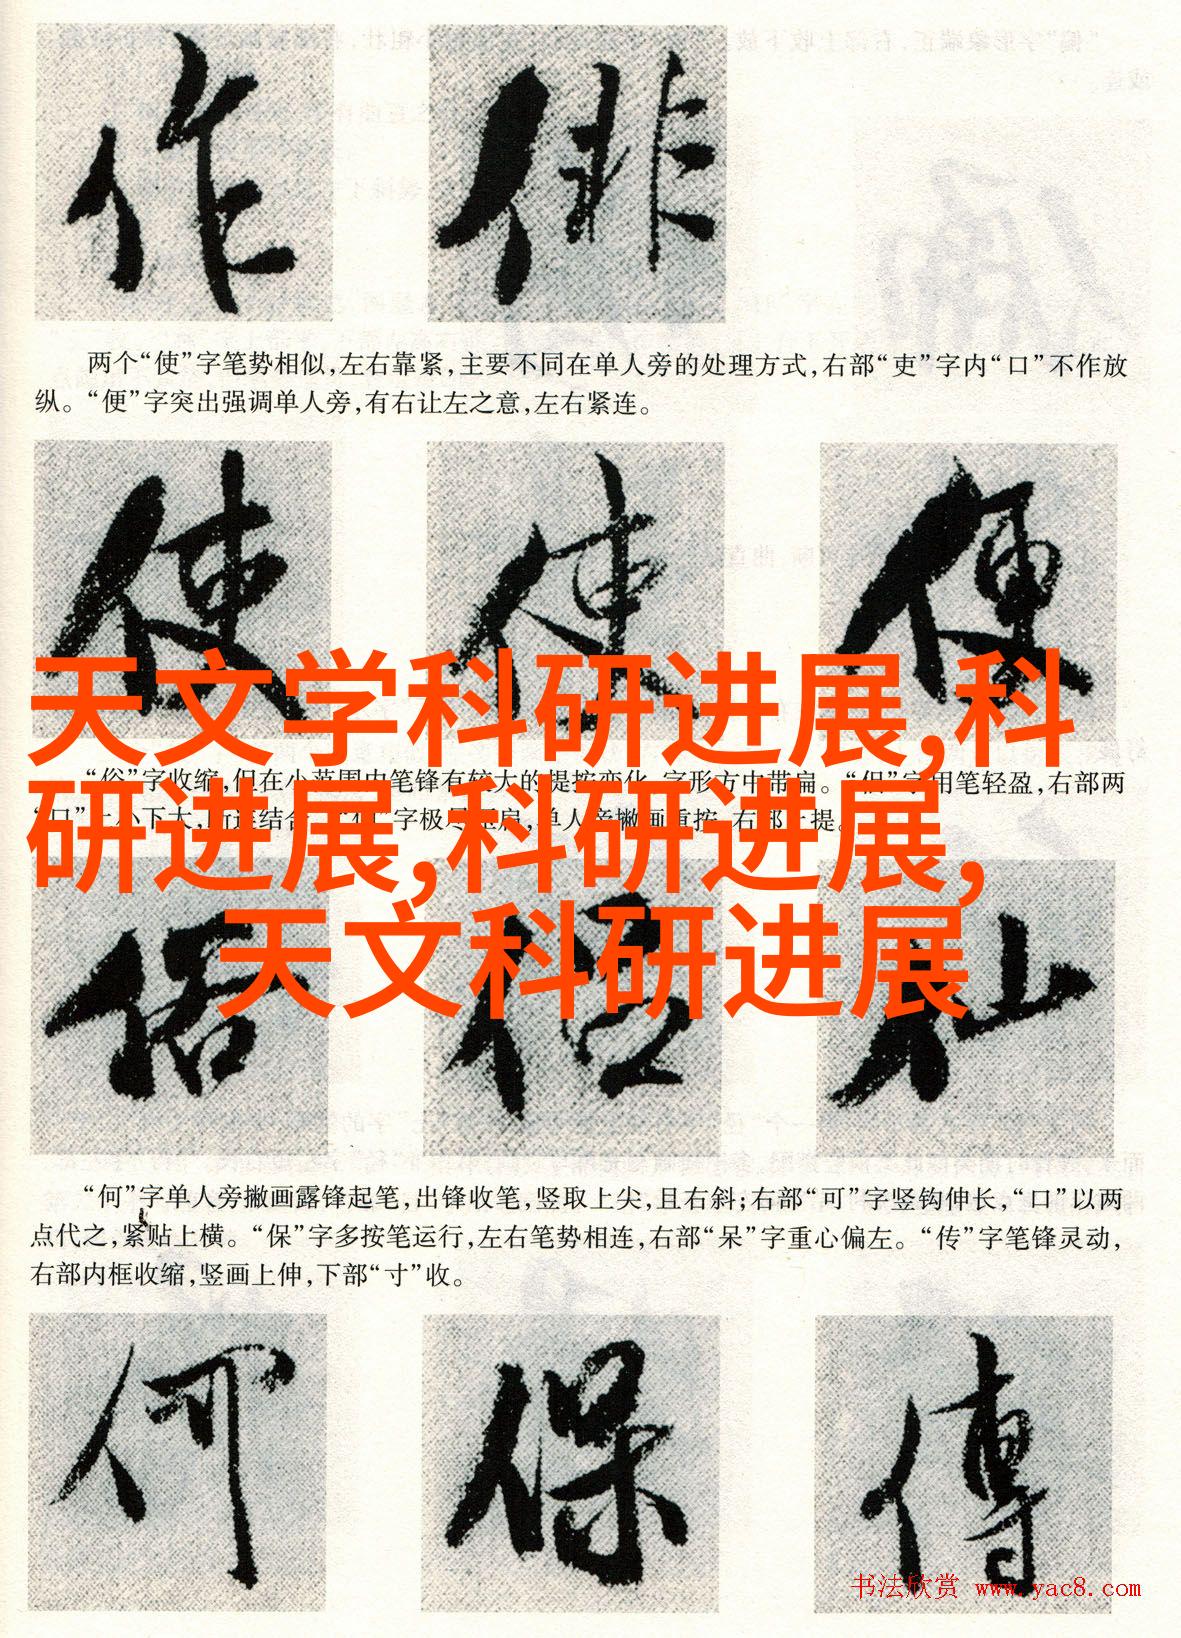 作 俳
两个“使”字笔势相似,左右靠紧,主要不同在单人旁的处理方式,右部“吏”字内“口”不作放
纵。“便”字突出强调单人旁,有右让左之意,左右紧连。
使 使 便
天文学科研进展,科
研进展,科研进展,
天文科研进展
“俗”字收缩,但在小范围内笔锋有较大的提按变化,字形方中带扁。“但”字用笔轻盈,右部两
字极尽 单人旁撇画重按,右部上提。
俗 仙
“何”字单人旁撇画露锋起笔,出锋收笔,竖取上尖,且右斜;右部“可”字竖钩伸长,“口”以两
点代之,紧贴上横。“保”字多按笔运行,左右笔势相连,右部“呆”字重心偏左。“传”字笔锋灵动,
右部内框收缩,竖画上伸,下部“寸”收。
何 保 傳
书法欣赏 www.yac8.com